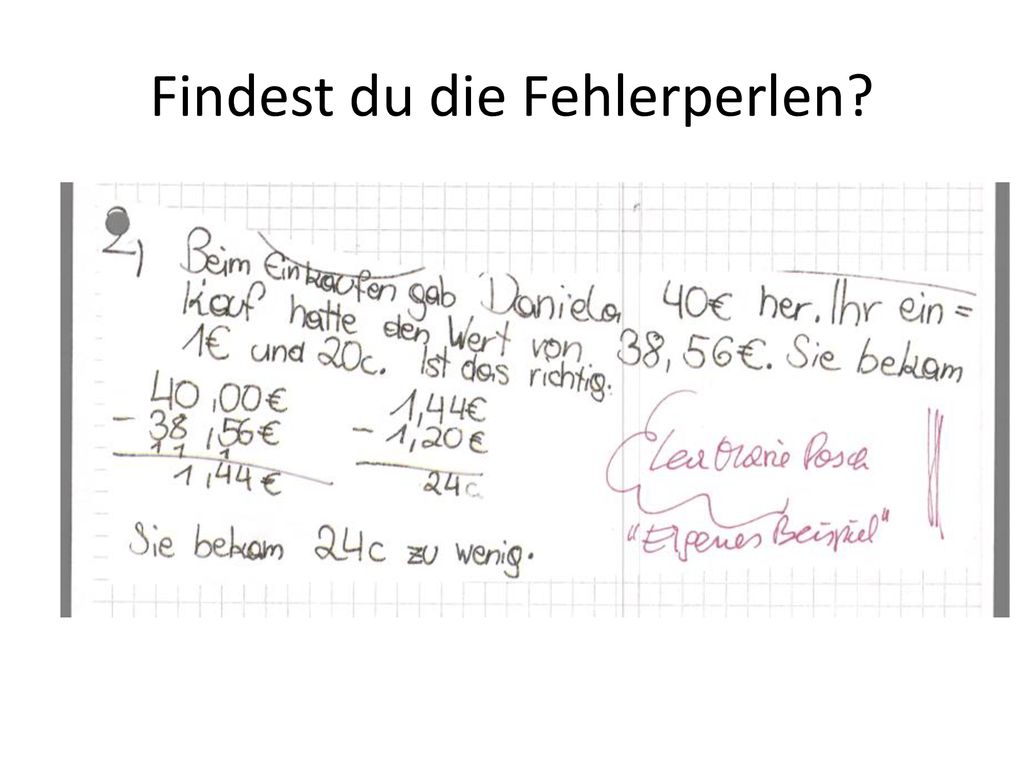 Findest du die Fehlerperlen?
2) Beim Einkaufen gab Daniela 40€ her. Ihr ein=
kauf hatte den Wert von 38,56€. Sie bekam
1€ und 20c. Ist das richtig.
40,00€ 1,44€
- 38,56€ - 1,20€
1 1 1
1,44€ 24c
Sie bekam 24c zu wenig.
Marie Posch
"Eigenes Beispiel"